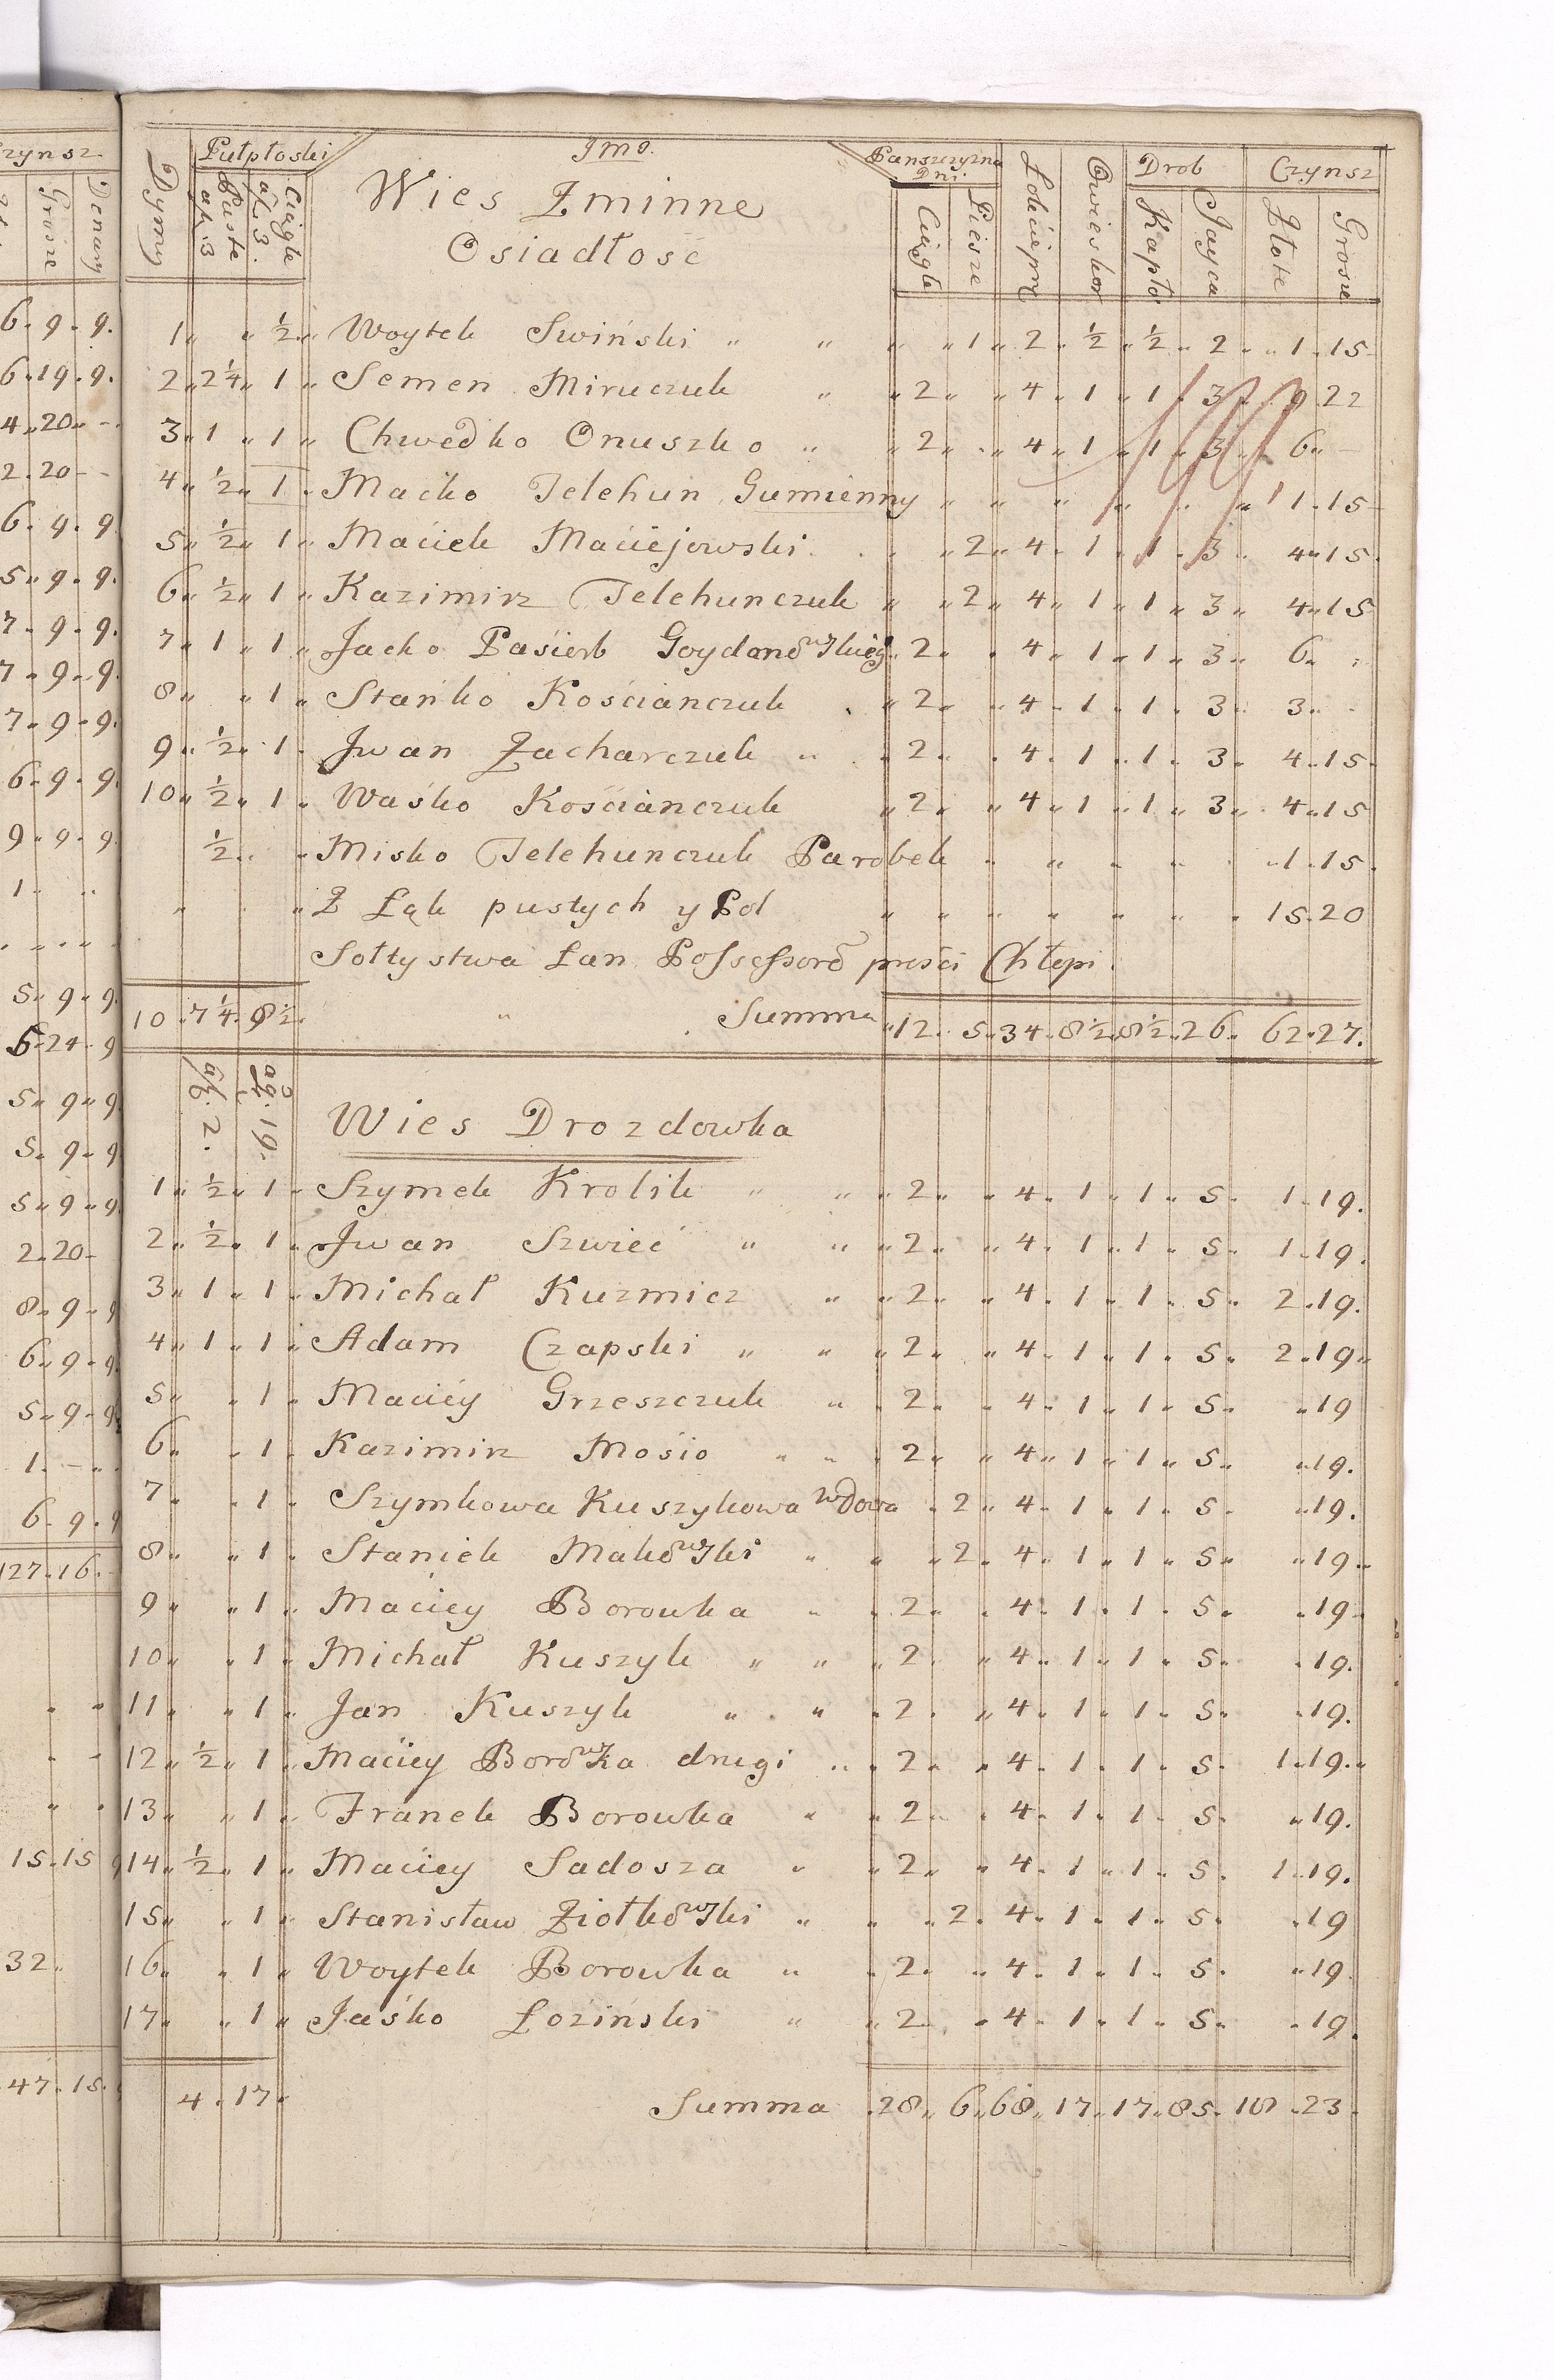 Czynsz
Grosze Denary
6 „ 9 „ 9.
6 „ 19 „ 9.
4 „ 20 „ -
2 „ 20 - -
6 „ 9 „ 9
5 „ 9 „ 9.
7 „ 9 „ 9.
7 „ 9 „ 9
7 „ 9 „ 9.
6 „ 9 „ 9.
9 „ 9 „ 9
1 „ „
5 „ 9 „ 9.
5 „ 24 „ 9
5 „ 9 „ 9
5 „ 9 „ 9
5 „ 9 „ 9
2 „ 20 -
8 „ 9 „ 9
6 „ 9 „ 9.
5 „ 9 „ 9
1 „ - „
6 „ 9 „ 9
127 „ 16
15 „ 15
32 „
47 „ 15
Dymy Pułpłoski Imo. Panszczyzna Dni Drob Czynsz
Puste á f. 3 Ciągłe á f. 3. Wies Zminne Ciągłe Piesze Kapło Jayca Złote Grosze
Osiadłość
1 „ „ ½ „ Woytek Swiński „ „ „ „ 1 „ 2 „ ½ „ ½ „ 2 „ „ 1 „ 15
2 „ 2 ¼ „ 1 „ Semen Miruczuk „ „ 2 „ „ 4 „ 1 „ 1 „ 3 „ 9 „ 22
3 „ 1 „ 1 „ Chwedko Onuszko „ „ 2 „ „ 4 „ 1 „ 1 „ 3 „ 6 „ -
4 „ ½ „ 1 „ Maćko Telehun Gumienny „ „ „ „ „ „ 1 „ 15
5 „ ½ „ 1 „ Maciek Maciejowski „ „ 2 „ 4 „ 1 „ 1 „ 3 „ 4 „ 15
6 „ ½ „ 1 „ Kazimirz Telehunczuk „ „ 2 „ 4 „ 1 „ 1 „ 3 „ 4 „ 15
7 „ 1 „ 1 „ Jacko Pasierb Goydanowskieg „ 2 „ „ 4 „ 1 „ 1 „ 3 „ 6 „ „
8 „ „ 1 „ Stańko Kościanczuk „ 2 „ „ 4 „ 1 „ 1 „ 3 „ 3 „ -
9 „ ½ „ 1 „ Jwan Zacharczuk „ „ 2 „ „ 4 „ 1 „ 1 „ 3 „ 4 „ 15
10 „ ½ „ 1 „ Waśko Kościanczuk „ 2 „ „ 4 „ 1 „ 1 „ 3 „ 4 „ 15
½ „ „ Misko Telehunczuk Parobek „ „ „ „ „ 1 „ 15
„ „ Z Łąk pustych y Pol „ „ „ „ „ „ „ 15 „ 20
Sołtystwa Łan Possessorō prości Chłopi
10 „ 7 ¼ „ 9 ½ „ Summa „ 12 „ 5 „ 34 „ 8 ½ „ 8 ½ „ 26 „ 62 „ 27.
á f. 2. á g. 19.
Wies Drozdowka
1 „ ½ „ 1 „ Szymek Krolik „ „ „ 2 „ „ 4 „ 1 „ 1 „ 5 „ 1 „ 19.
2 „ ½ „ 1 „ Jwan Szwieć „ „ „ 2 „ „ 4 „ 1 „ 1 „ 5 „ 1 „ 19.
3 „ 1 „ 1 „ Michał Kuzmicz „ „ 2 „ „ 4 „ 1 „ 1 „ 5 „ 2 „ 19.
4 „ 1 „ 1 „ Adam Czapski „ „ „ 2 „ „ 4 „ 1 „ 1 „ 5 „ 2 „ 19 „
5 „ „ 1 „ Maciey Grzeszczuk „ „ 2 „ „ 4 „ 1 „ 1 „ 5 „ „ 19
6 „ „ 1 „ Kazimirz Mosio „ „ „ 2 „ „ 4 „ 1 „ 1 „ 5 „ „ 19.
7 „ „ 1 „ Szymkowa Kuszykowa wdowa „ 2 „ 4 „ 1 „ 1 „ 5 „ „ 19.
8 „ „ 1 „ Staniek Makowski „ „ „ 2 „ 4 „ 1 „ 1 „ 5 „ „ 19 „
9 „ „ 1 „ Maciey Borowka „ „ 2 „ „ 4 „ 1 „ 1 „ 5 „ „ 19
10 „ „ 1 „ Michał Kuszyk „ „ „ 2 „ „ 4 „ 1 „ 1 „ 5 „ „ 19.
11 „ „ 1 „ Jan Kuszyk „ „ „ 2 „ „ 4 „ 1 „ 1 „ 5 „ „ 19.
12 „ ½ „ 1 „ Maciey Borowka drugi „ „ 2 „ „ 4 „ 1 „ 1 „ 5 „ 1 „ 19 „
13 „ „ 1 „ Franek Borowka „ „ 2 „ „ 4 „ 1 „ 1 „ 5 „ „ 19.
14 „ ½ „ 1 „ Maciey Sadosza „ „ 2 „ „ 4 „ 1 „ 1 „ 5 „ 1 „ 19.
15 „ „ 1 „ Stanisław Ziołkowski „ „ „ 2 „ 4 „ 1 „ 1 „ 5 „ „ 19
16 „ „ 1 „ Woytek Borowka „ „ 2 „ „ 4 „ 1 „ 1 „ 5 „ „ 19
17 „ „ 1 „ Jaśko Łoziński „ „ 2 „ „ 4 „ 1 „ 1 „ 5 „ „ 19.
4 „ 17 „ Summa „ 28 „ 6 „ 68 „ 17 „ 17 „ 85 „ 18 „ 23